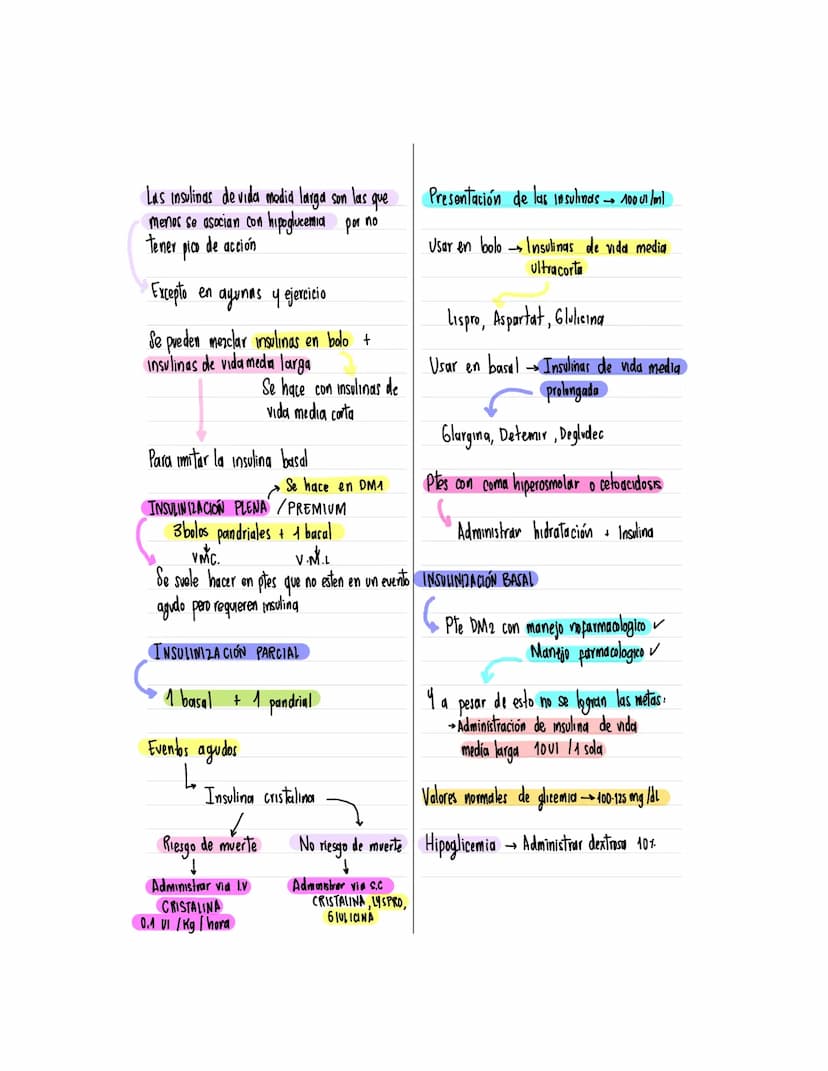 Las insulinas de vida media larga son las que
menos se asocian con hipoglucemia por no
tener pico de acción
Excepto en ayunas y ejercicio
Se pueden mezclar insulinas en bolo +
insulinas de vida media larga
Se hace con insulinas de
vida media corta
Para imitar la insulina basal
→ Se hace en DM1
INSULINIZACIÓN PLENA / PREMIUM
3 bolos pandriales + 1 basal
VMC. V.M.L
Se suele hacer en ptes que no esten en un evento
agudo pero requieren insulina
INSULINIZACIÓN PARCIAL
1 basal + 1 pandrial
Eventos agudos
Insulina cristalina
Riesgo de muerte No riesgo de muerte
Administrar via I.V
CRISTALINA
0.1 UI / Kg / hora
Administrar via S.C
CRISTALINA, LYSPRO,
GLULICINA
Presentación de las insulinas → 100 UI/ml
Usar en bolo → Insulinas de vida media
ultracorta
Lispro, Aspartat, Glulicina
Usar en basal → Insulinas de vida media
prolongada
Glargina, Detemir, Degludec
Ptes con coma hiperosmolar o cetoacidosis
Administrar hidratación + Insulina
INSULINIZACIÓN BASAL
Pte DM2 con manejo nofarmacologico ✓
Manejo farmacologico ✓
Y a pesar de esto no se logran las metas:
→ Administración de insulina de vida
media larga 10 UI / 1 sola
Valores normales de glicemia → 100-125 mg/dL
Hipoglicemia → Administrar dextrosa 10%